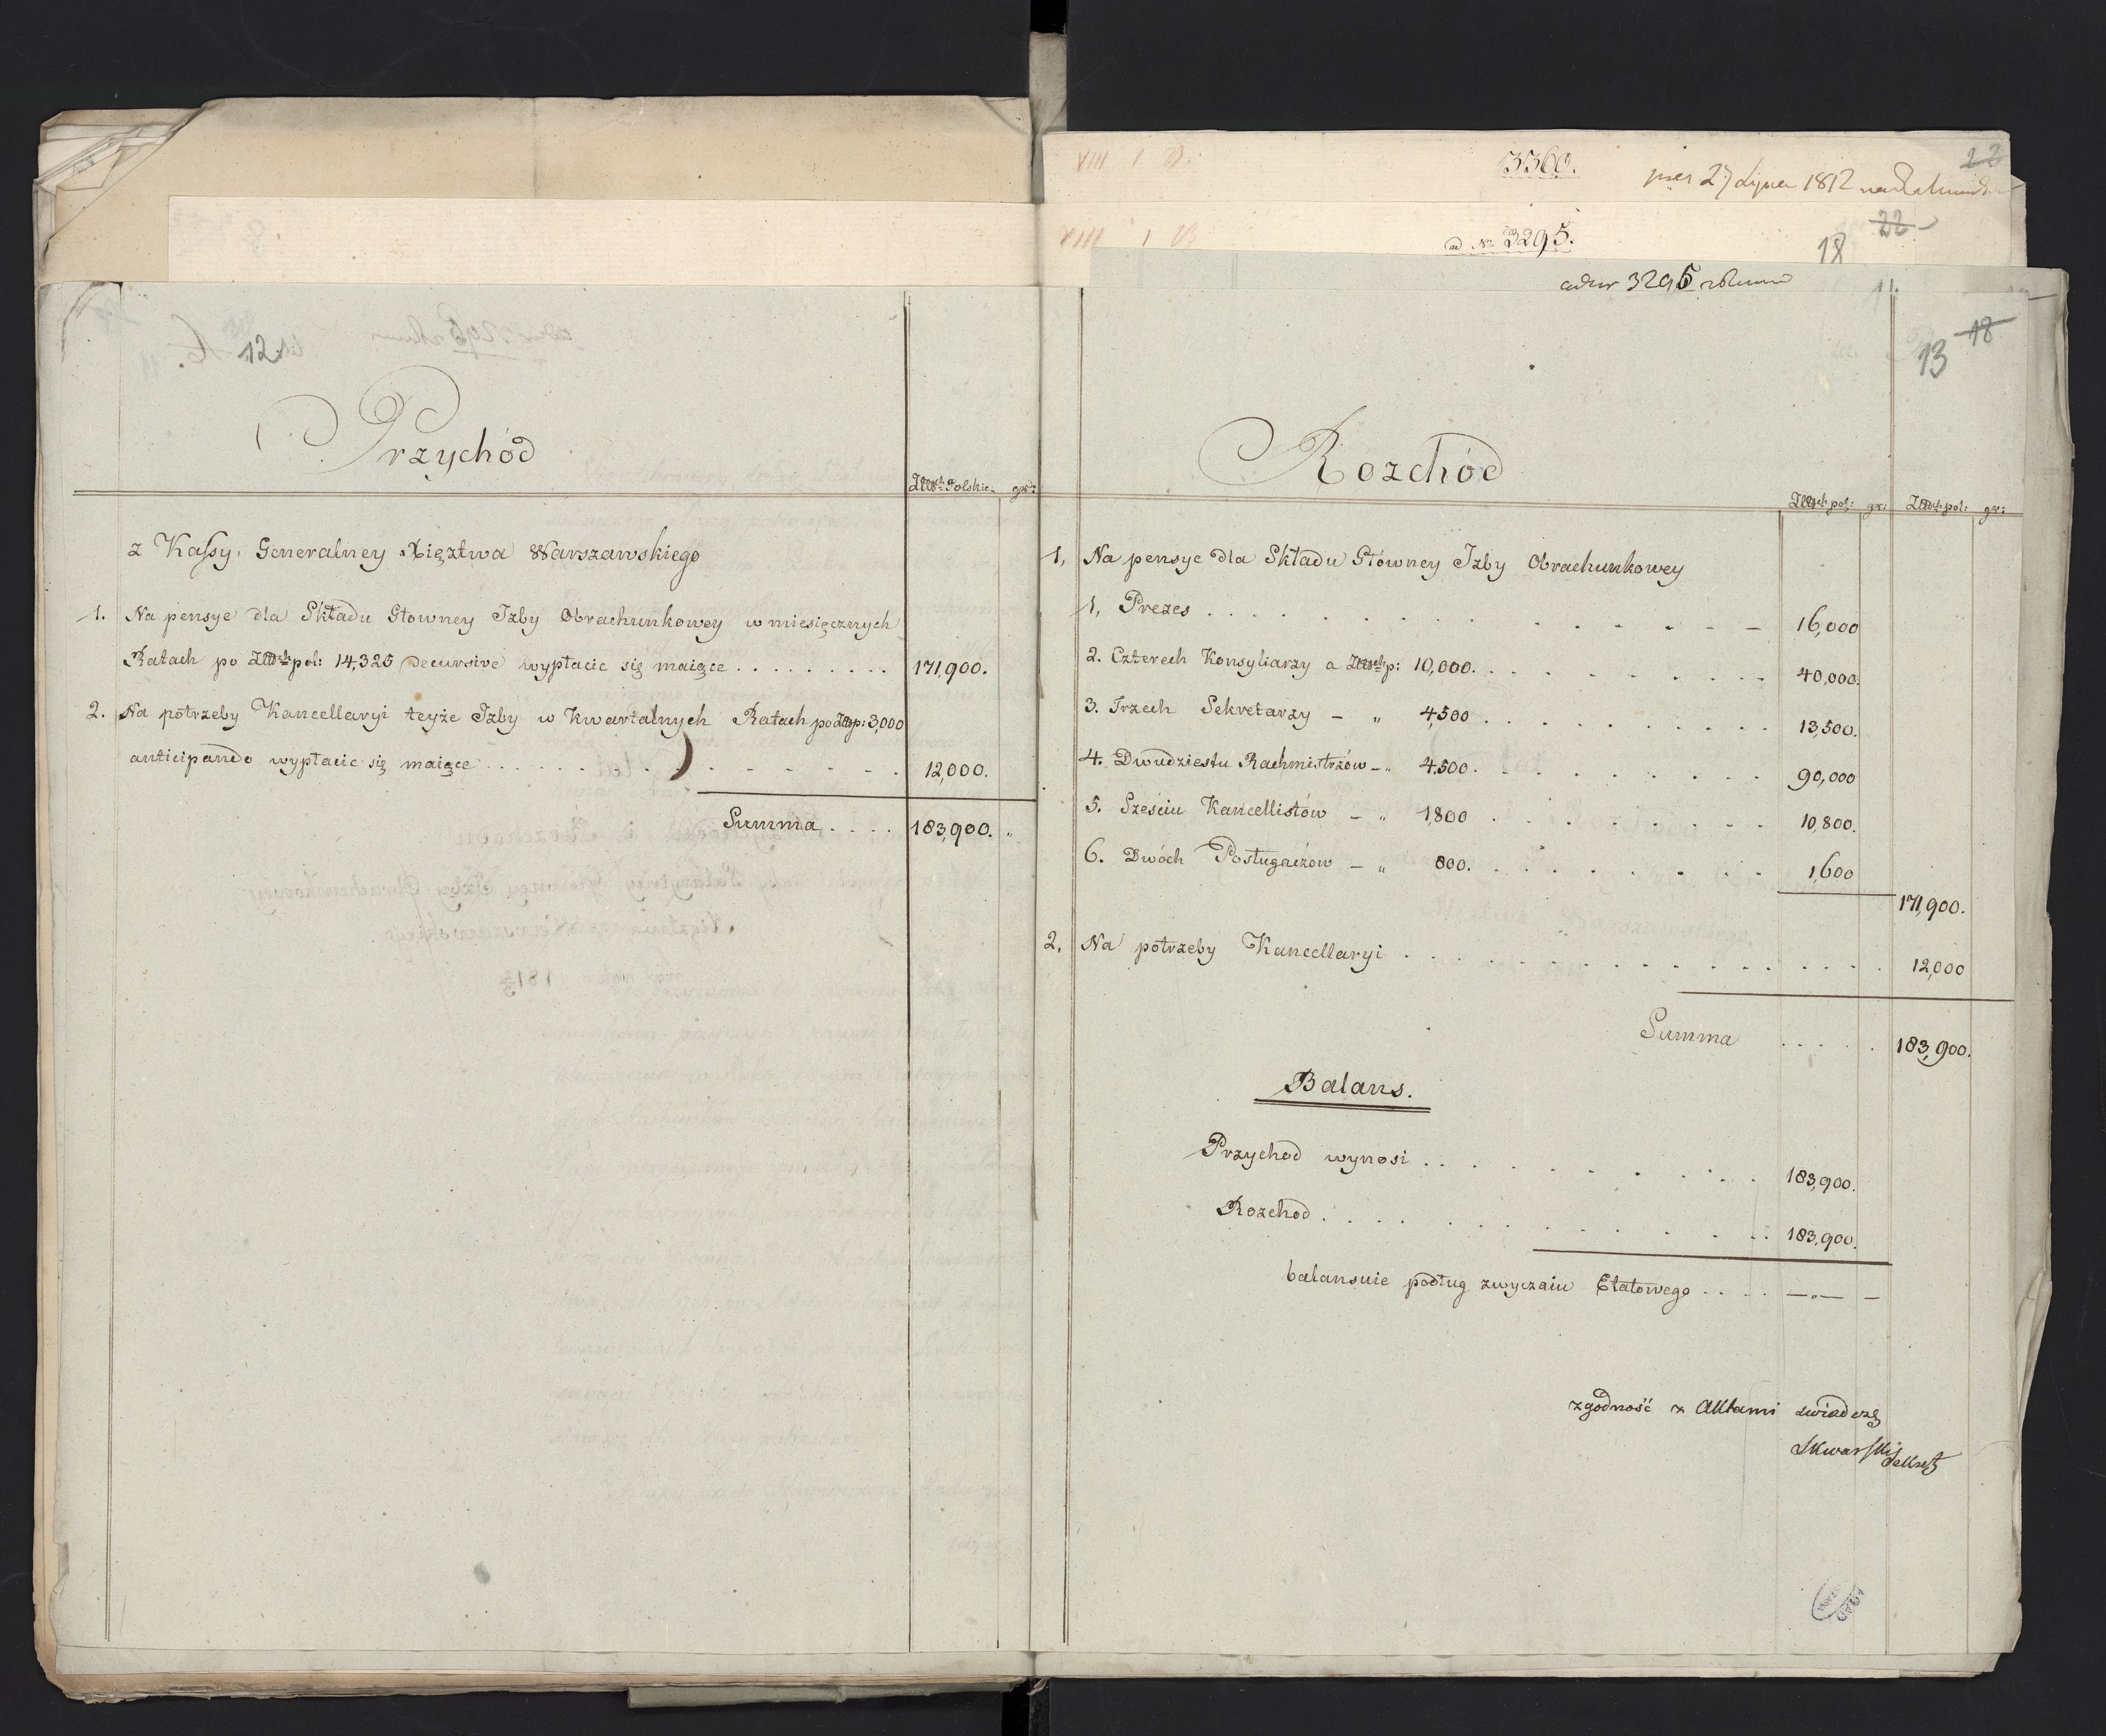 12
Przychód
Złłych Polskie: gr:
z Kassy Generalney Xięztwa Warszawskiego
1. Na pensye dla Składu Głowney Izby Obrachunkowey w miesięcznych
Ratach po Złłych pol: 14,325 decursive wypłacic się maiące . . . . . . . . . 171,900.
2. Na potrzeby Kancellaryi teyże Izby w kwartalnych Ratach po Złłp: 3,000
anticipando wypłacic się maiące . . . . . . . . . . . . . 12,000.
Summa . . . . 183,900. „
VIII 1 B.
3360.
22
27 Lipca 1812
VIII 1 B
ad No 3295.
22
18
3295
11.
18
13
Rozchód
Złłych pol: gr: Złłych pol: gr:
1, Na pensye dla Składu Główney Izby Obrachunkowey
1, Prezes . . . . . . . . . . . . . . 16,000
2. Czterech Konsyliarzy a Złłych p: 10,000. . . . . . . . . . . 40,000.
3. Trzech Sekretarzy – „ 4,500 . . . . . . . . . . 13,500.
4. Dwudziestu Rachmistrzów – „ 4,500. . . . . . . . . . 90,000
5. Sześciu Kancellistów – „ 1,800 . . . . . . . . . 10,800.
6. Dwóch Posługaczow – „ 800. . . . . . . . . . 1,600
171,900.
2, Na potrzeby Kancellaryi . . . . . . . . . . . . . . . . 12,000
Summa . . . . . 183,900.
Balans.
Przychod wynosi . . . . . . . . . . . 183,900.
Rozchod . . . . . . . . . . . . . 183,900.
balansuie podług zwyczaiu Etatowego . . . . – „ – –
zgodność z Aktami świadczę
Skwarski Sekret
AGAD